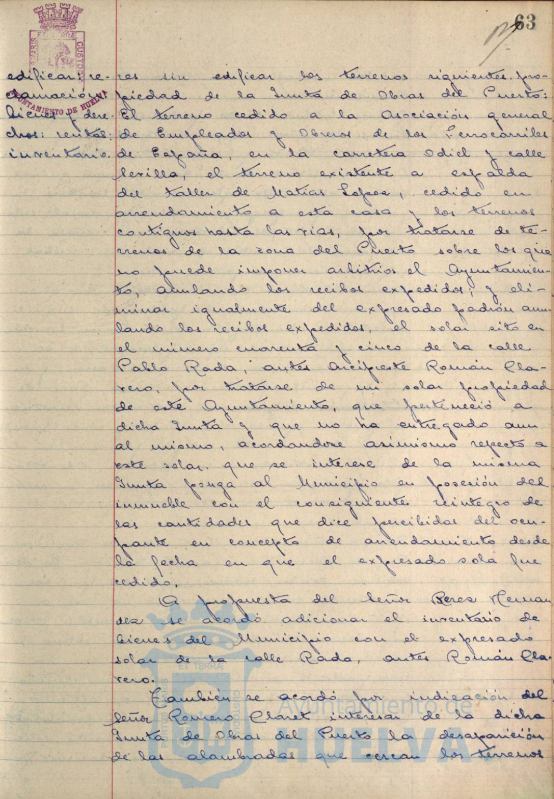 63
edificar re-
clamación
bienes y dere-
chos: rentas:
inventario.
AYUNTAMIENTO DE HUELVA
res sin edificar los terrenos siguientes, pro-
piedad de la Junta de Obras del Puerto:
El terreno cedido a la Asociación general
de Empleados y Obreros de los Ferrocarriles
de España, en la carretera Odiel y calle
Sevilla, el terreno existente a espalda
del taller de Matías Lopez, cedido en
arrendamiento a esta casa y los terrenos
contiguos hasta las vías, por tratarse de te-
rrenos de la zona del Puerto sobre los que
no puede imponer arbitrios el Ayuntamien-
to, anulando los recibos expedidos; y eli-
minar igualmente del expresado padrón anu-
lando los recibos expedidos, el solar sito en
el número cuarenta y cinco de la calle
Pablo Rada, antes Arcipreste Román Cla-
rero, por tratarse de un solar propiedad
de este Ayuntamiento, que perteneció a
dicha Junta y que no ha entregado aun
al mismo, acordandose asimismo respecto a
este solar, que se interese de la misma
Junta ponga al Municipio en posesión del
inmueble con el consiguiente reintegro de
las cantidades que dice percibidas del ocu-
pante en concepto de arrendamiento desde
la fecha en que el expresado sola fue
cedido.
A propuesta del Señor Perez Hernan
dez se acordó adicionar el inventario de
bienes del Municipio con el expresado
solar de la calle Rada, antes Román Cla-
rero.
También se acordó por indicación del
Señor Romero Claret interesar de la dicha
Junta de Obras del Puerto la desaparición
de las alambradas que cercan los terrenos
Ayuntamiento de
HUELVA